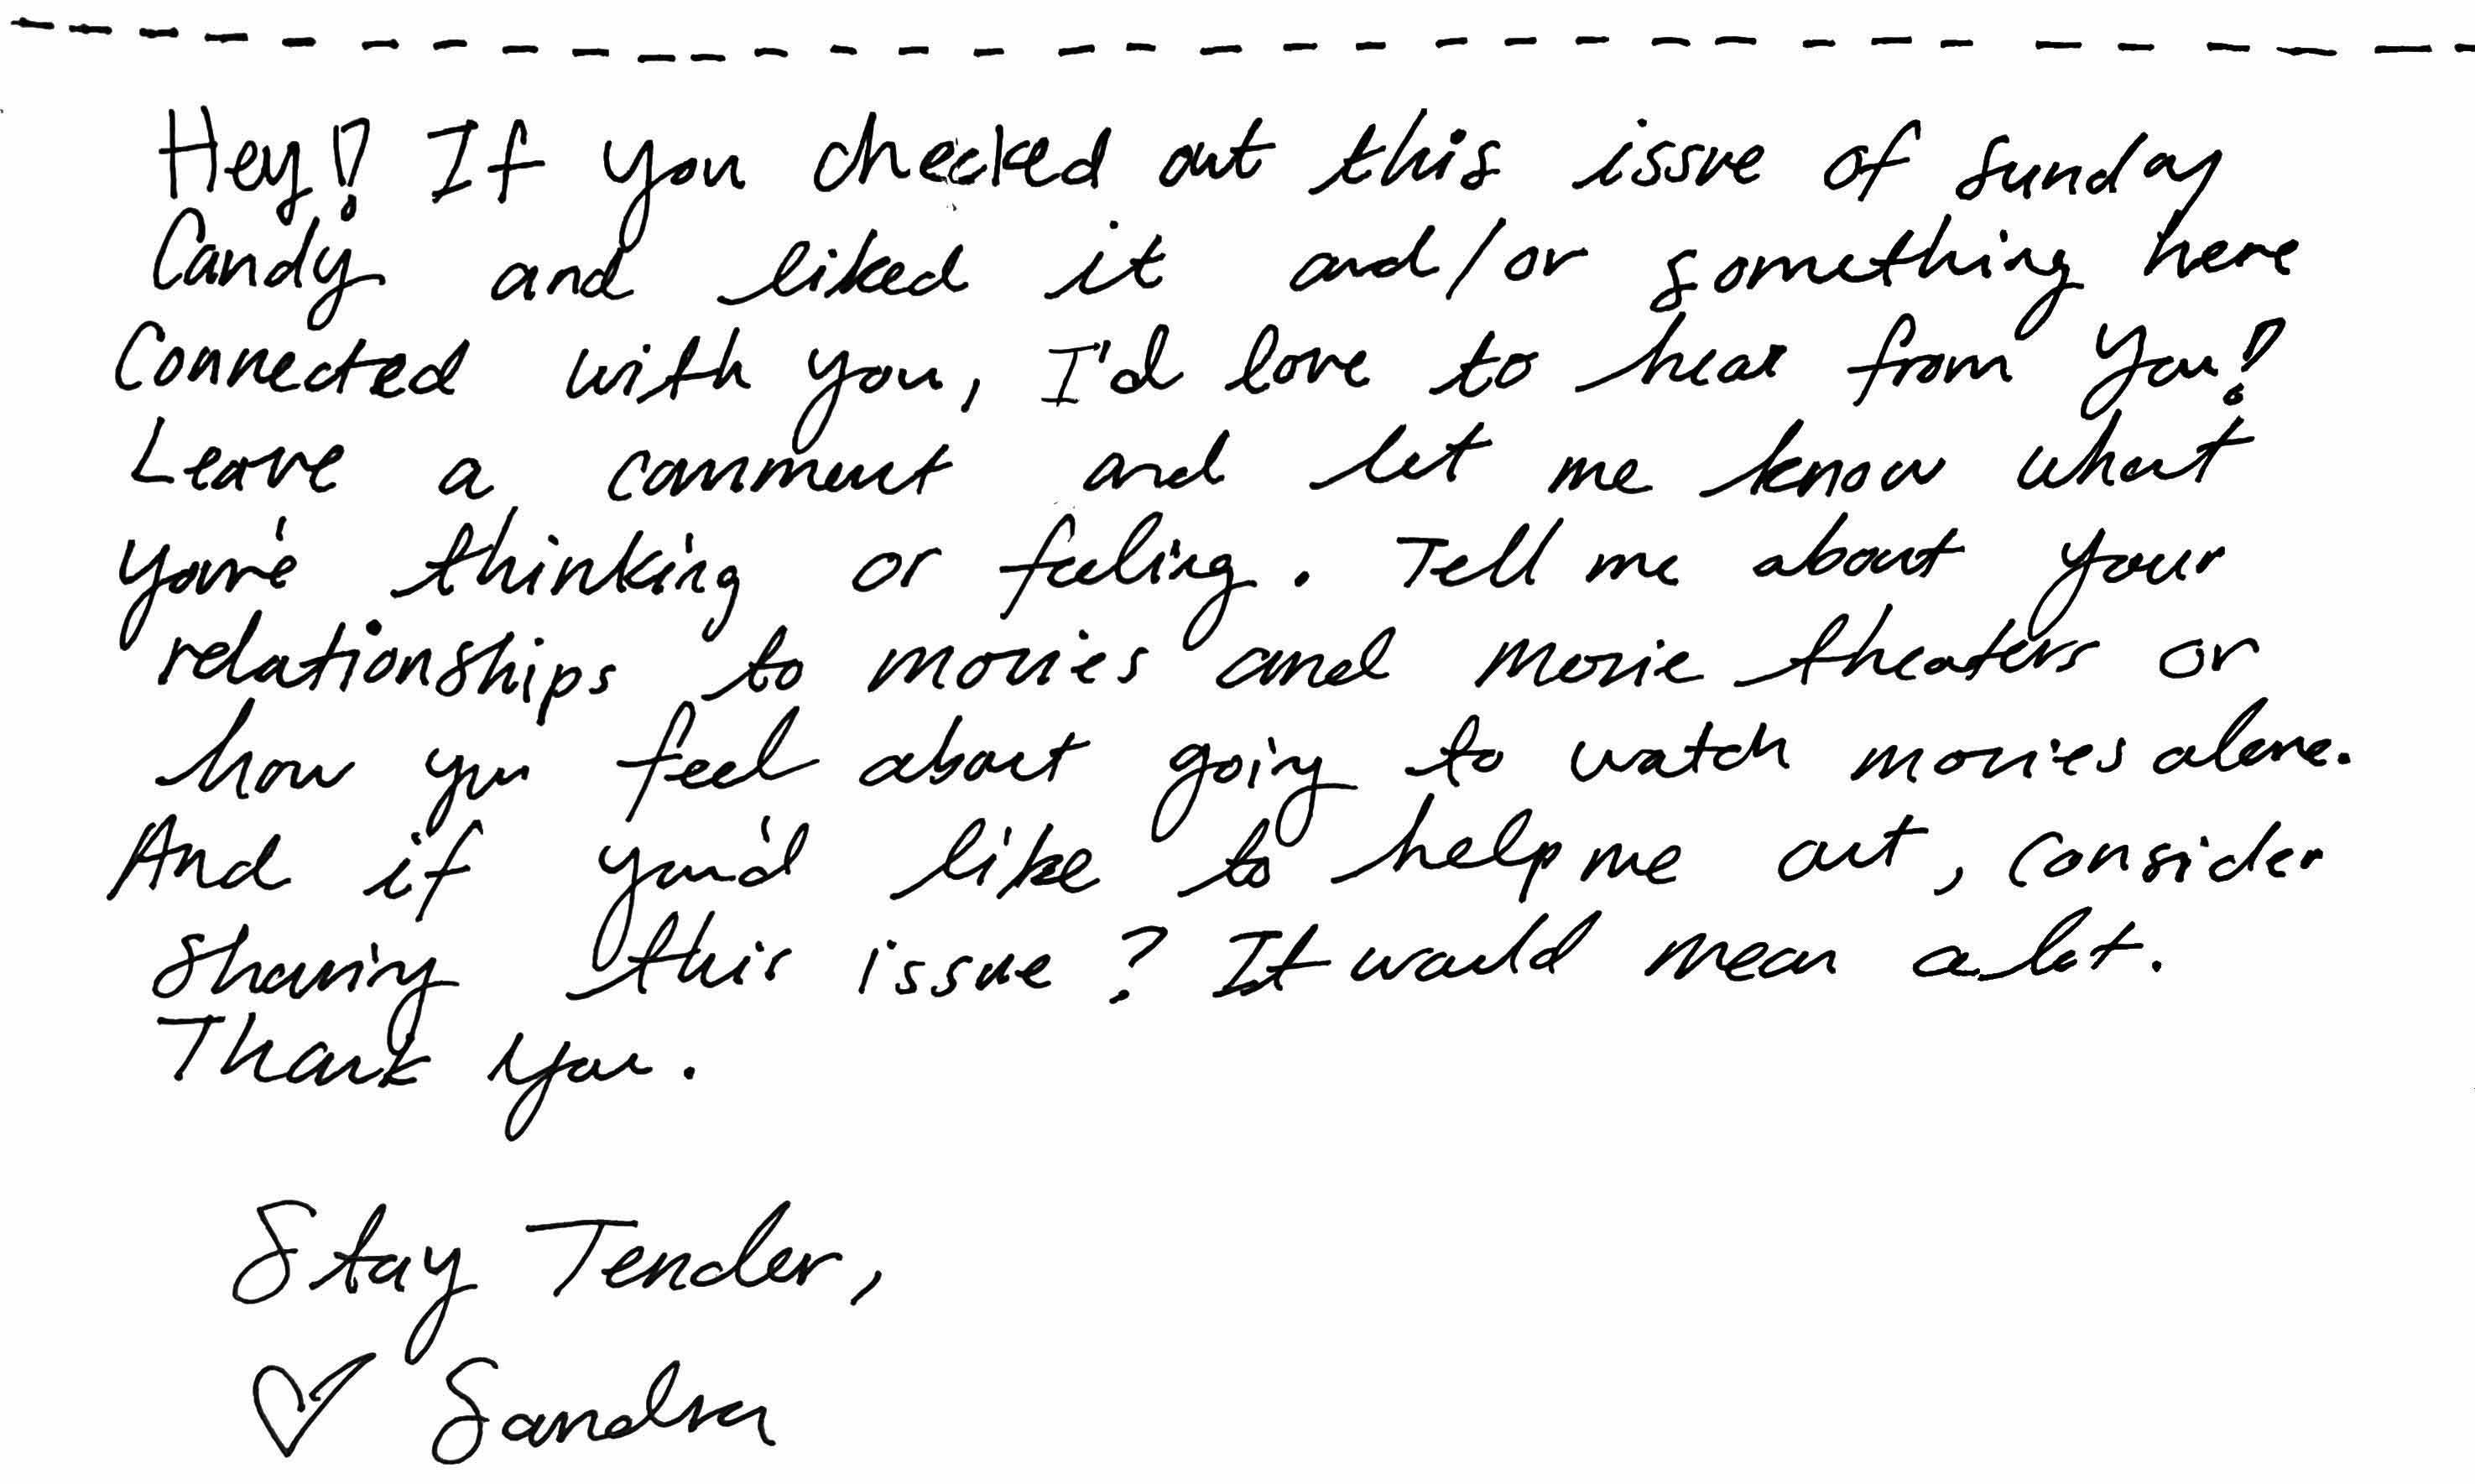 Hey! If you checked out this issue of Sunday
Candy and liked it and/or something here
connected with you, I'd love to hear from you!
Leave a comment and let me know what
you're thinking or feeling. Tell me about your
relationships to movies and movie theaters or
how you feel about going to watch movies alone.
And if you'd like to help me out, consider
sharing this issue? It would mean a lot.
Thank you.
Stay Tender,
♡ Sandra